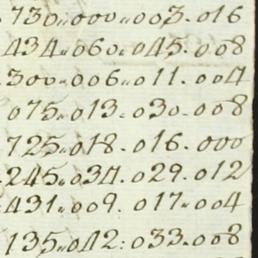 730..000..003.016
434..060.045.008
300..006.011.004
075.013.030.008
725.018.016.000
245.034.029.012
431.009.017.004
135.042:033.008